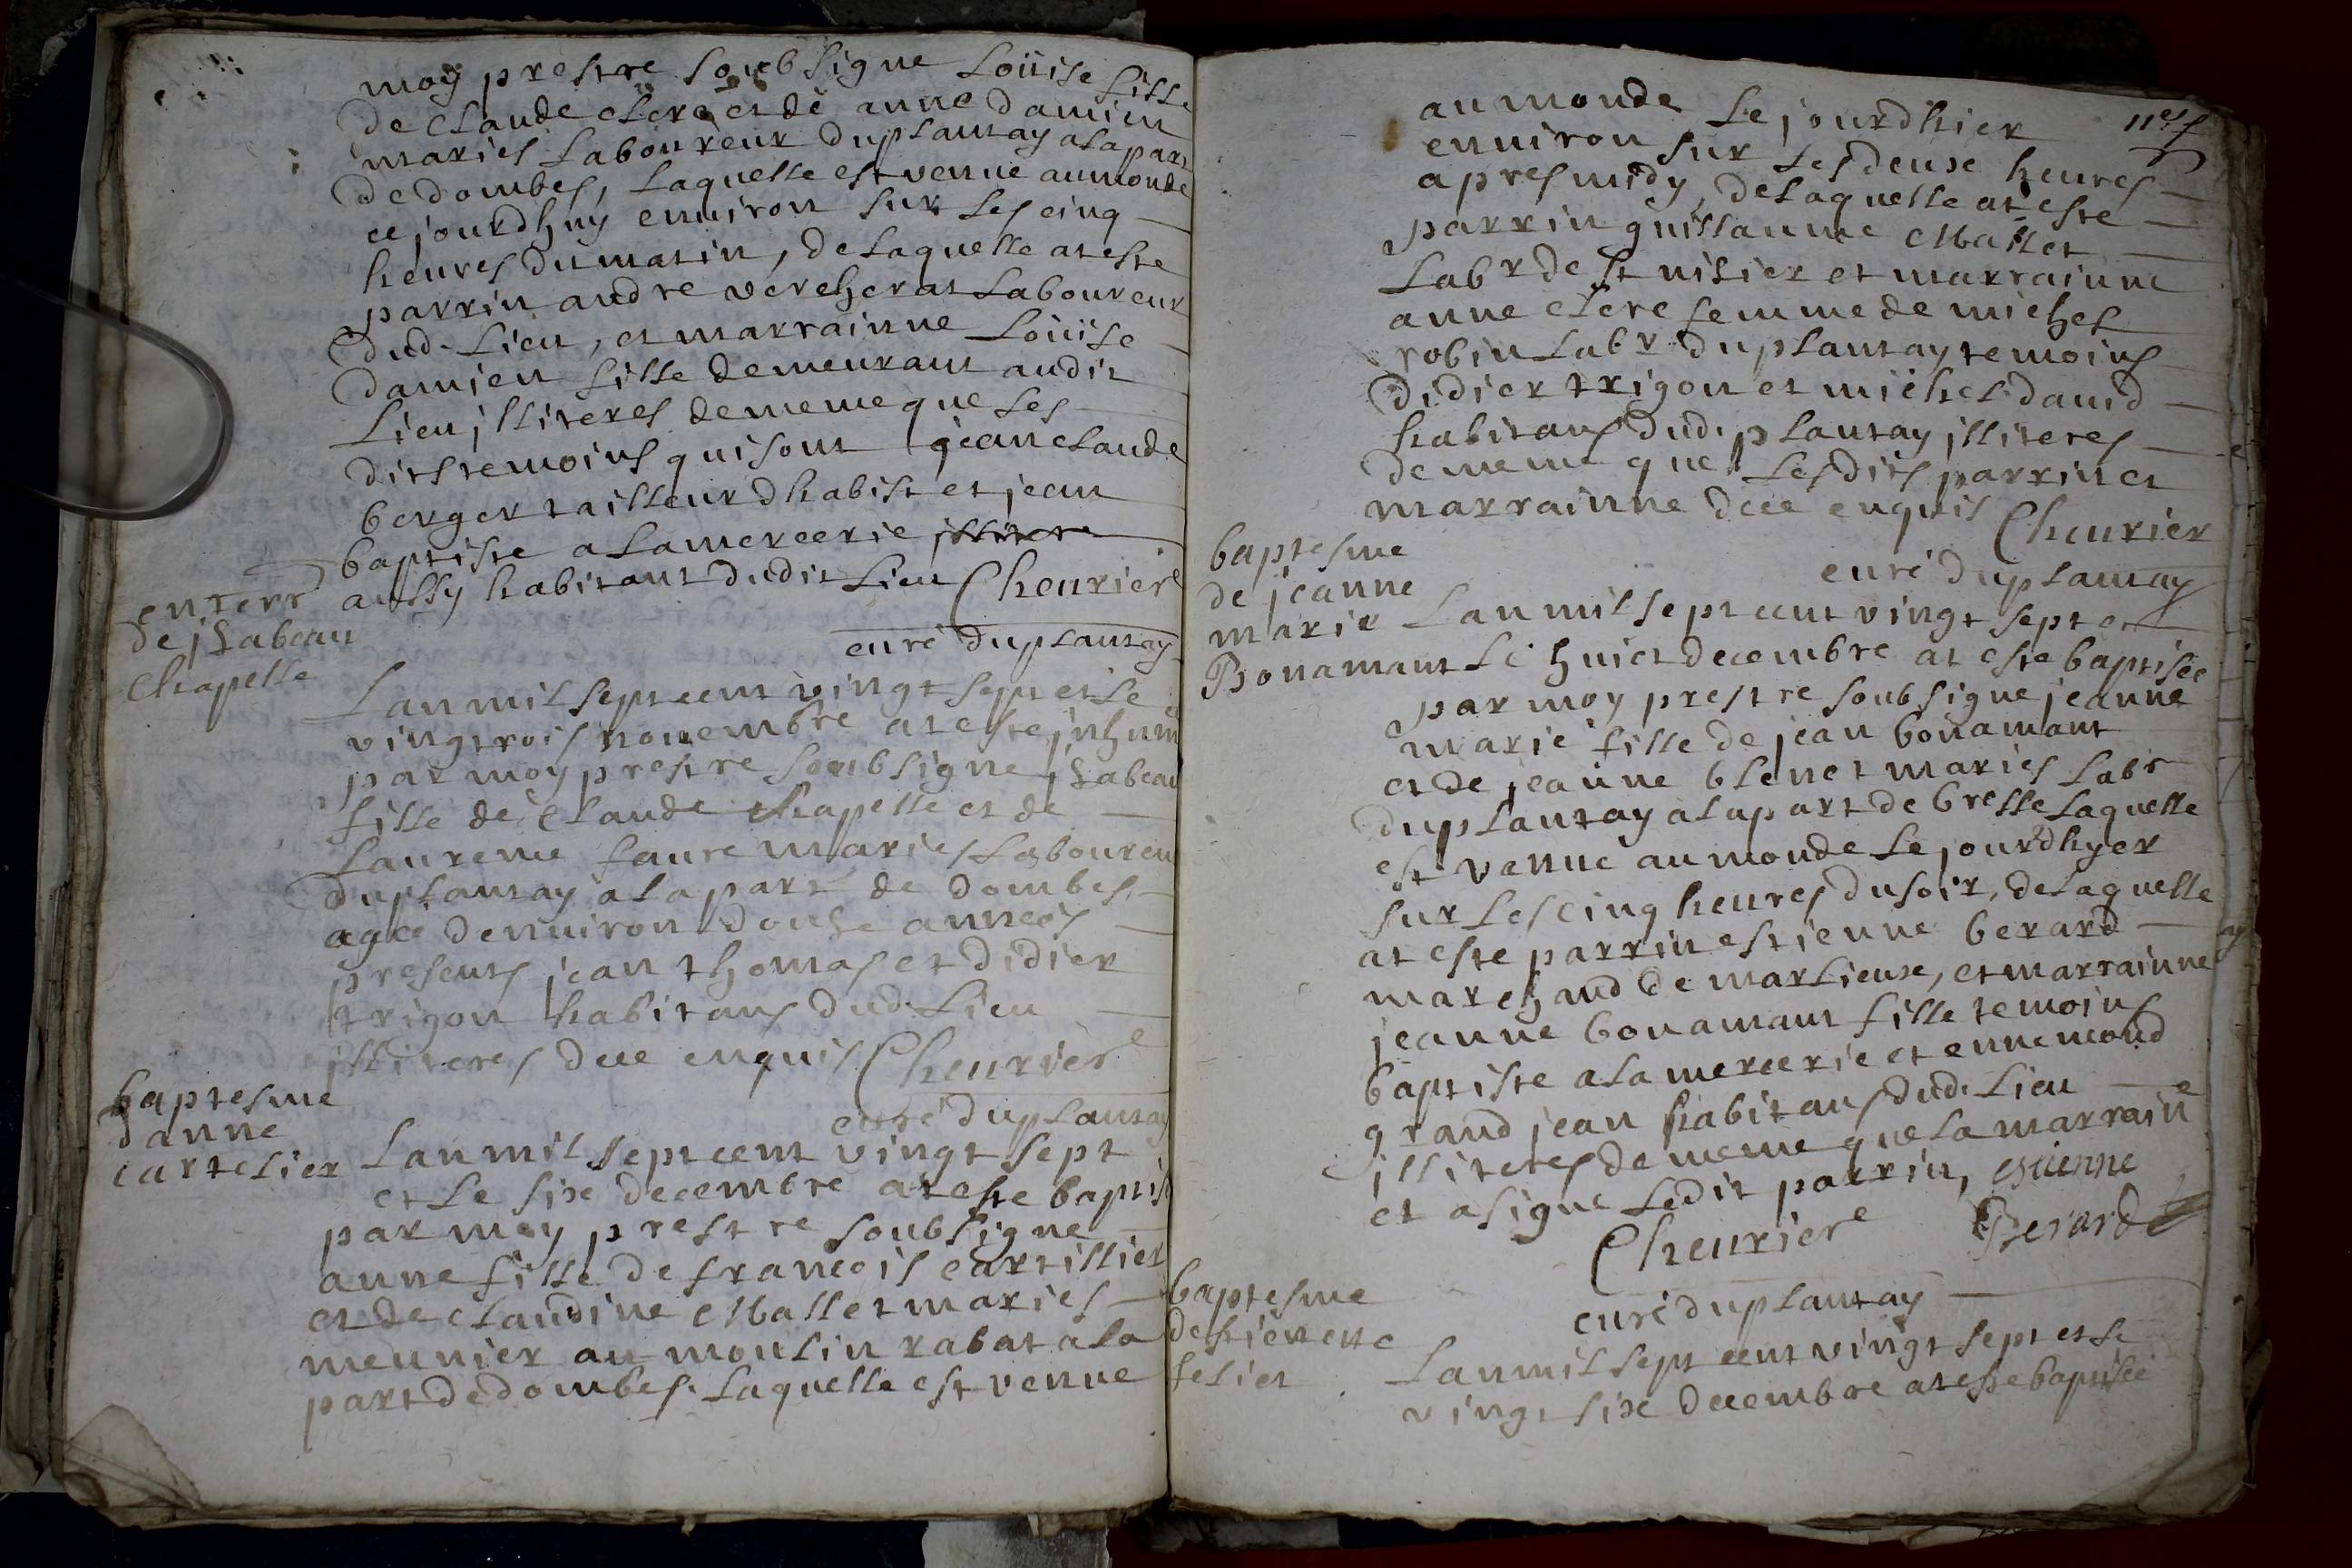 moy prestre soubsigne Loüise fille
de claude clerc et de anne damien
mariés laboureur duplantay alapart
de dombes, laquelle est venue aumonde
cejourdhuy environ sur les cinq
heures dumatin, delaquelle at este
parrin andre vercherat laboureur
dud. lieu, et marrainne Loüise
damien fille demeurant audit
lieu jlliteres dememe que les
dits temoins qui sont jean claude
berger tailleur dhabist et jean
baptiste alamercerie jllitere
aussy habitant dudit lieu Cheurier
curé duplantay
enterrt
de jsabeau
chapelle
Lanmil septcent vingt sept et le
vingtrois nouembre at este jnhum
par moy prestre soubsigne jsabeau
fille de claude chapelle et de
laurence faure mariés laboureu
duplantay alapart de dombes
agée denuiron douse années
presents jean thomas et didier
trigon habitans dud. lieu
jlliteres dece enquis Cheurier
curé duplantay
baptesme
danne
cartelier
Lanmil septcent vingt sept
et le six decembre at este baptis
par moy prestre soubsigne
anne fille de francois cartillier
et de claudine Mallet mariés
meunier au moulin rabat ala
part dedombes. laquelle est venue
aumonde le jourdhier
enuiron sur les deux heures
apresmidy, delaquelle at este
parrin guillaume Mallet
labr de st nisier et marrainne
anne clerc femme de michel
robin labr duplantay temoins
didier trigon et michel dauid
habitans dud. plantay jlliteres
dememe que lesdits parrin et
marrainne dece enquis Cheurier
curé duplantay
baptesme
de jeanne
marie
Bonamant
Lanmil septcent vingt sept et
le huict decembre at este baptisée
par moy prestre soubsigne jeanne
marie fille de jean bonamant
et de jeanne blenet mariés labr
duplantay alapart de bresse laquelle
est venue aumonde le jourdhyer
sur les cinq heures dusoir, delaquelle
at este parrin estienne berard
marchand de marlieux, et marrainne
jeanne bonamant fille temoins
baptiste alamercerie et ennemond
grand jean habitans dud. lieu
jlliteres dememe que la marraine
et a signe ledit parrin, estienne
Cheurier Berard
curé duplantay
baptesme
destienette
felier
Lanmil sept cent vingt sept et le
vingt six decembre at este baptisée